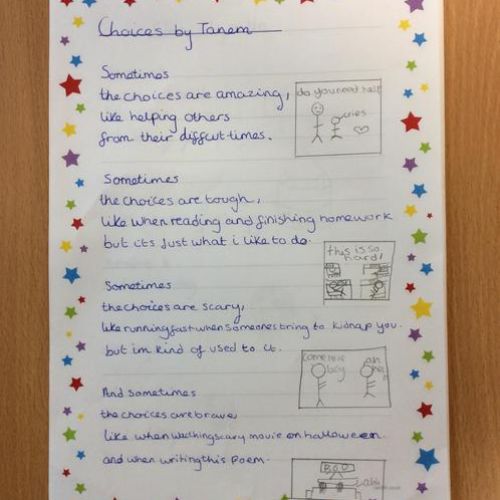 Choices by Tanem
Sometimes
the choices are amazing,
like helping others
from their diffcut times.
do you need help
cries
Sometimes
the choices are tough,
like when reading and finishing homework
but its Just what i like to do.
this is so
hard!
Sometimes
the choices are scary,
like running fast when someones tring to kidnap you.
but im kind of used to it.
come here
boy
oh
And sometimes
the choices are brave,
like when wathing scary movie on halloween.
and when writing this Poem.
BOO